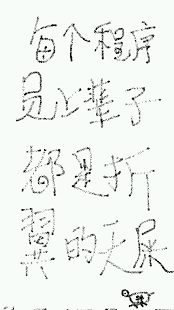 每个程序
员上辈子
都是折
翼的天屎